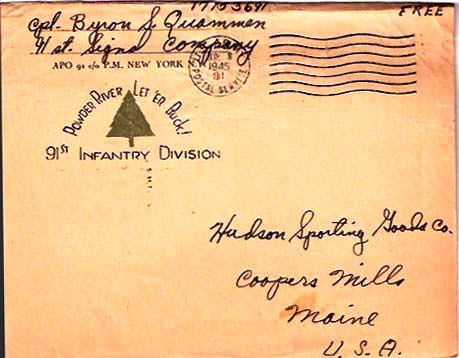 FREE
Cpl. Byron S. Quammen
91 st. Signal Company
APO 91 c/o P.M. NEW YORK
1945
91
POSTAL SERVICE
POWDER RIVER LET 'ER BUCK!
91ST INFANTRY DIVISION
Hudson Sporting Goods Co.
Coopers Mills
Maine
U. S. A.